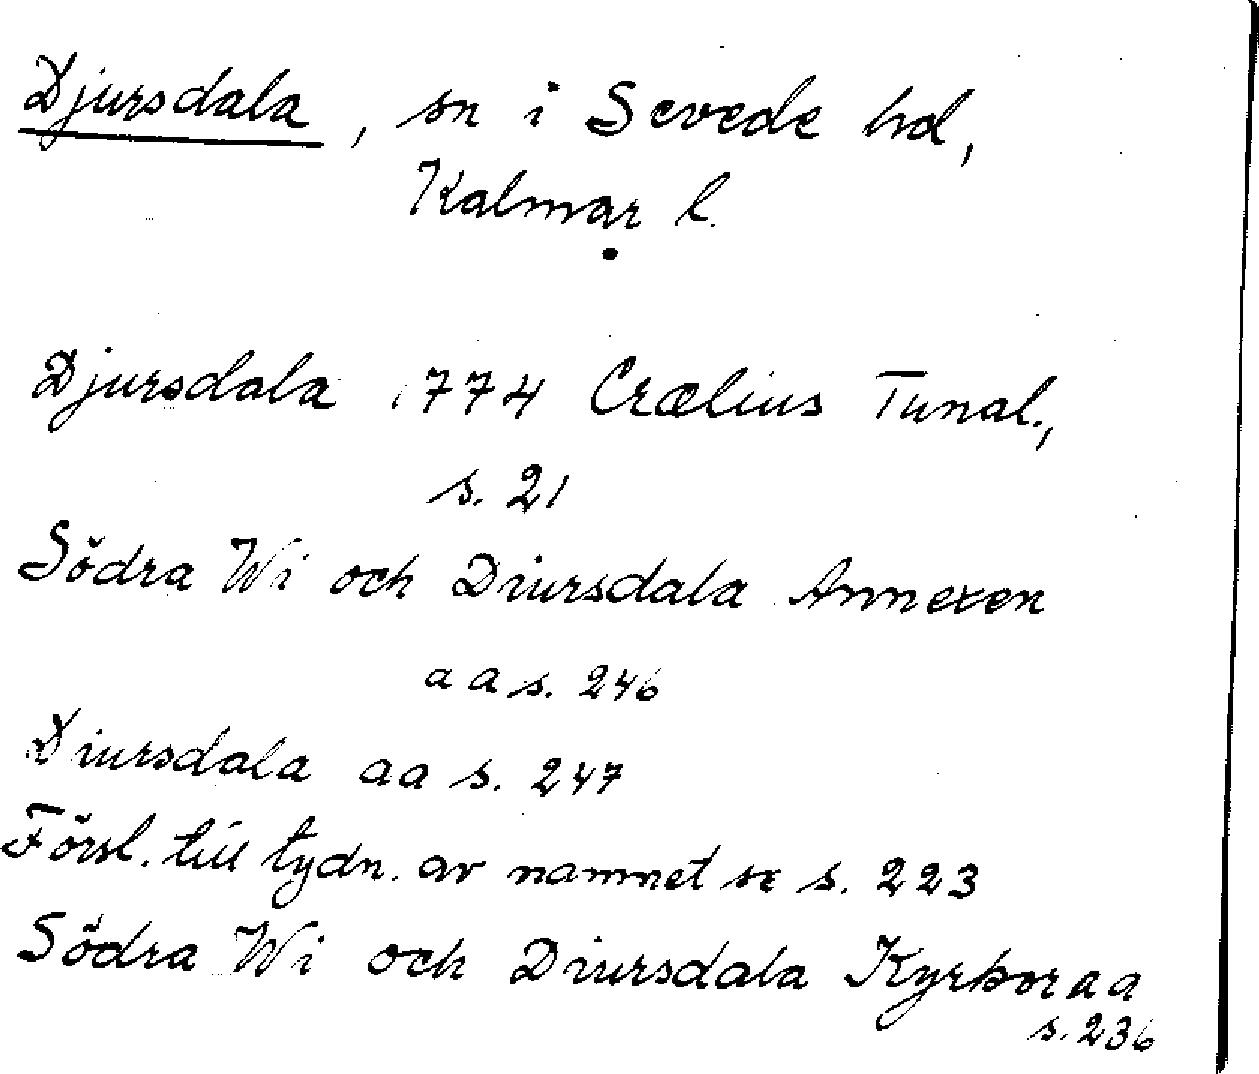 Djursdala, sn i Sevede hd,
Kalmar l.
Djursdala 1774 Crælius Tunal.,
s. 21
Södra Wi och Diursdala Annexen
a a s. 246
Diursdala aa s. 247
Försl. till tydn. av namnet se s. 223
Södra Wi och Diursdala Kyrkor a a
s. 236